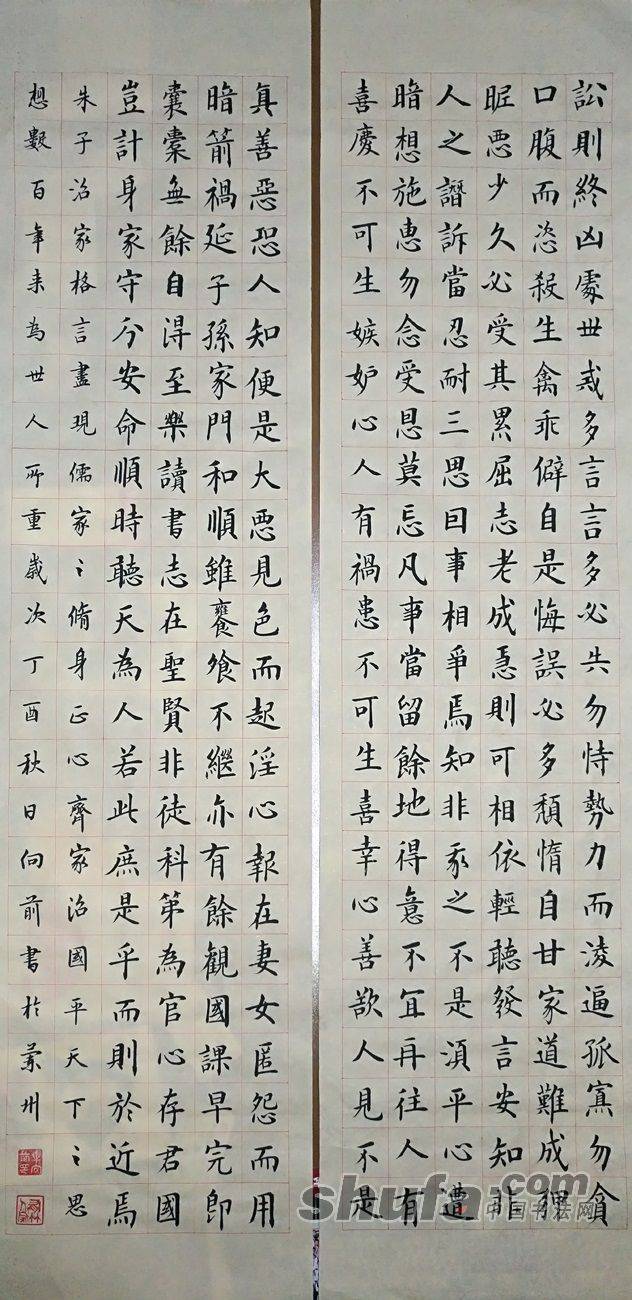 訟則終凶處世戒多言言多必失勿恃勢力而淩逼孤寡勿貪
口腹而恣殺生禽乖僻自是悔誤必多頹惰自甘家道難成狎
昵惡少久必受其累屈志老成急則可相依輕聽發言安知非
人之譖訴當忍耐三思因事相爭焉知非我之不是須平心遭
暗想施惠勿念受恩莫忘凡事當留餘地得意不宜再往人有
喜慶不可生嫉妒心人有禍患不可生喜幸心善欲人見不是
真善惡恐人知便是大惡見色而起淫心報在妻女匿怨而用
暗箭禍延子孫家門和順雖饔飧不繼亦有餘觀國課早完即
囊橐無餘自得至樂讀書志在聖賢非徒科第為官心存君國
豈計身家守分安命順時聽天為人若此庶是乎而則於近焉
朱子治家格言盡現儒家〻脩身正心齊家治國平天下〻思
想數百年来為世人所重歲次丁酉秋日向前書於蘭州
shufa.com
中国书法网